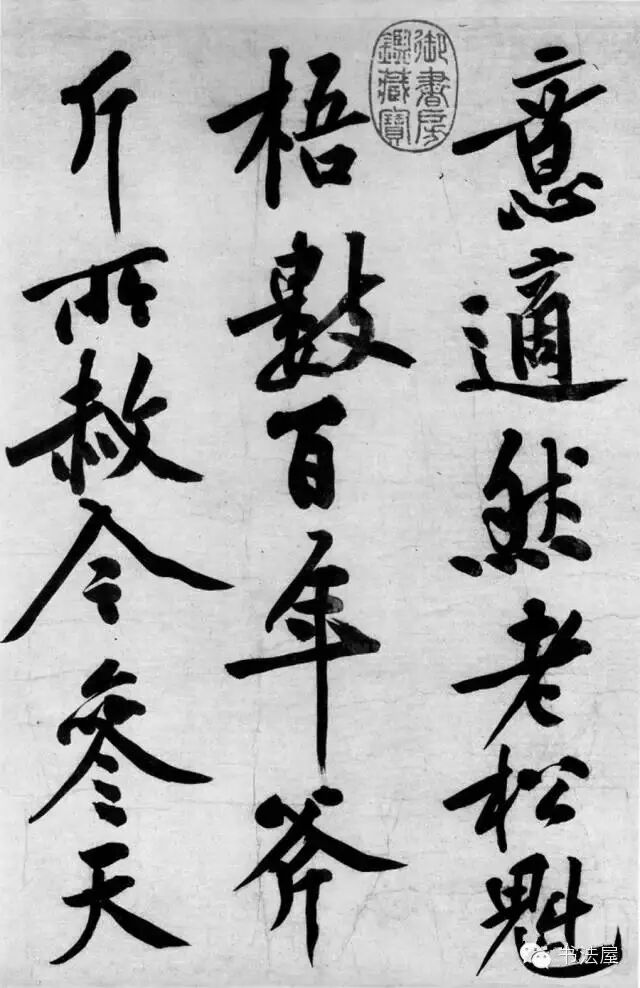 意適然老松魁
梧數百年斧
斤所赦今參天
御書房
鑑藏寶
书法屋